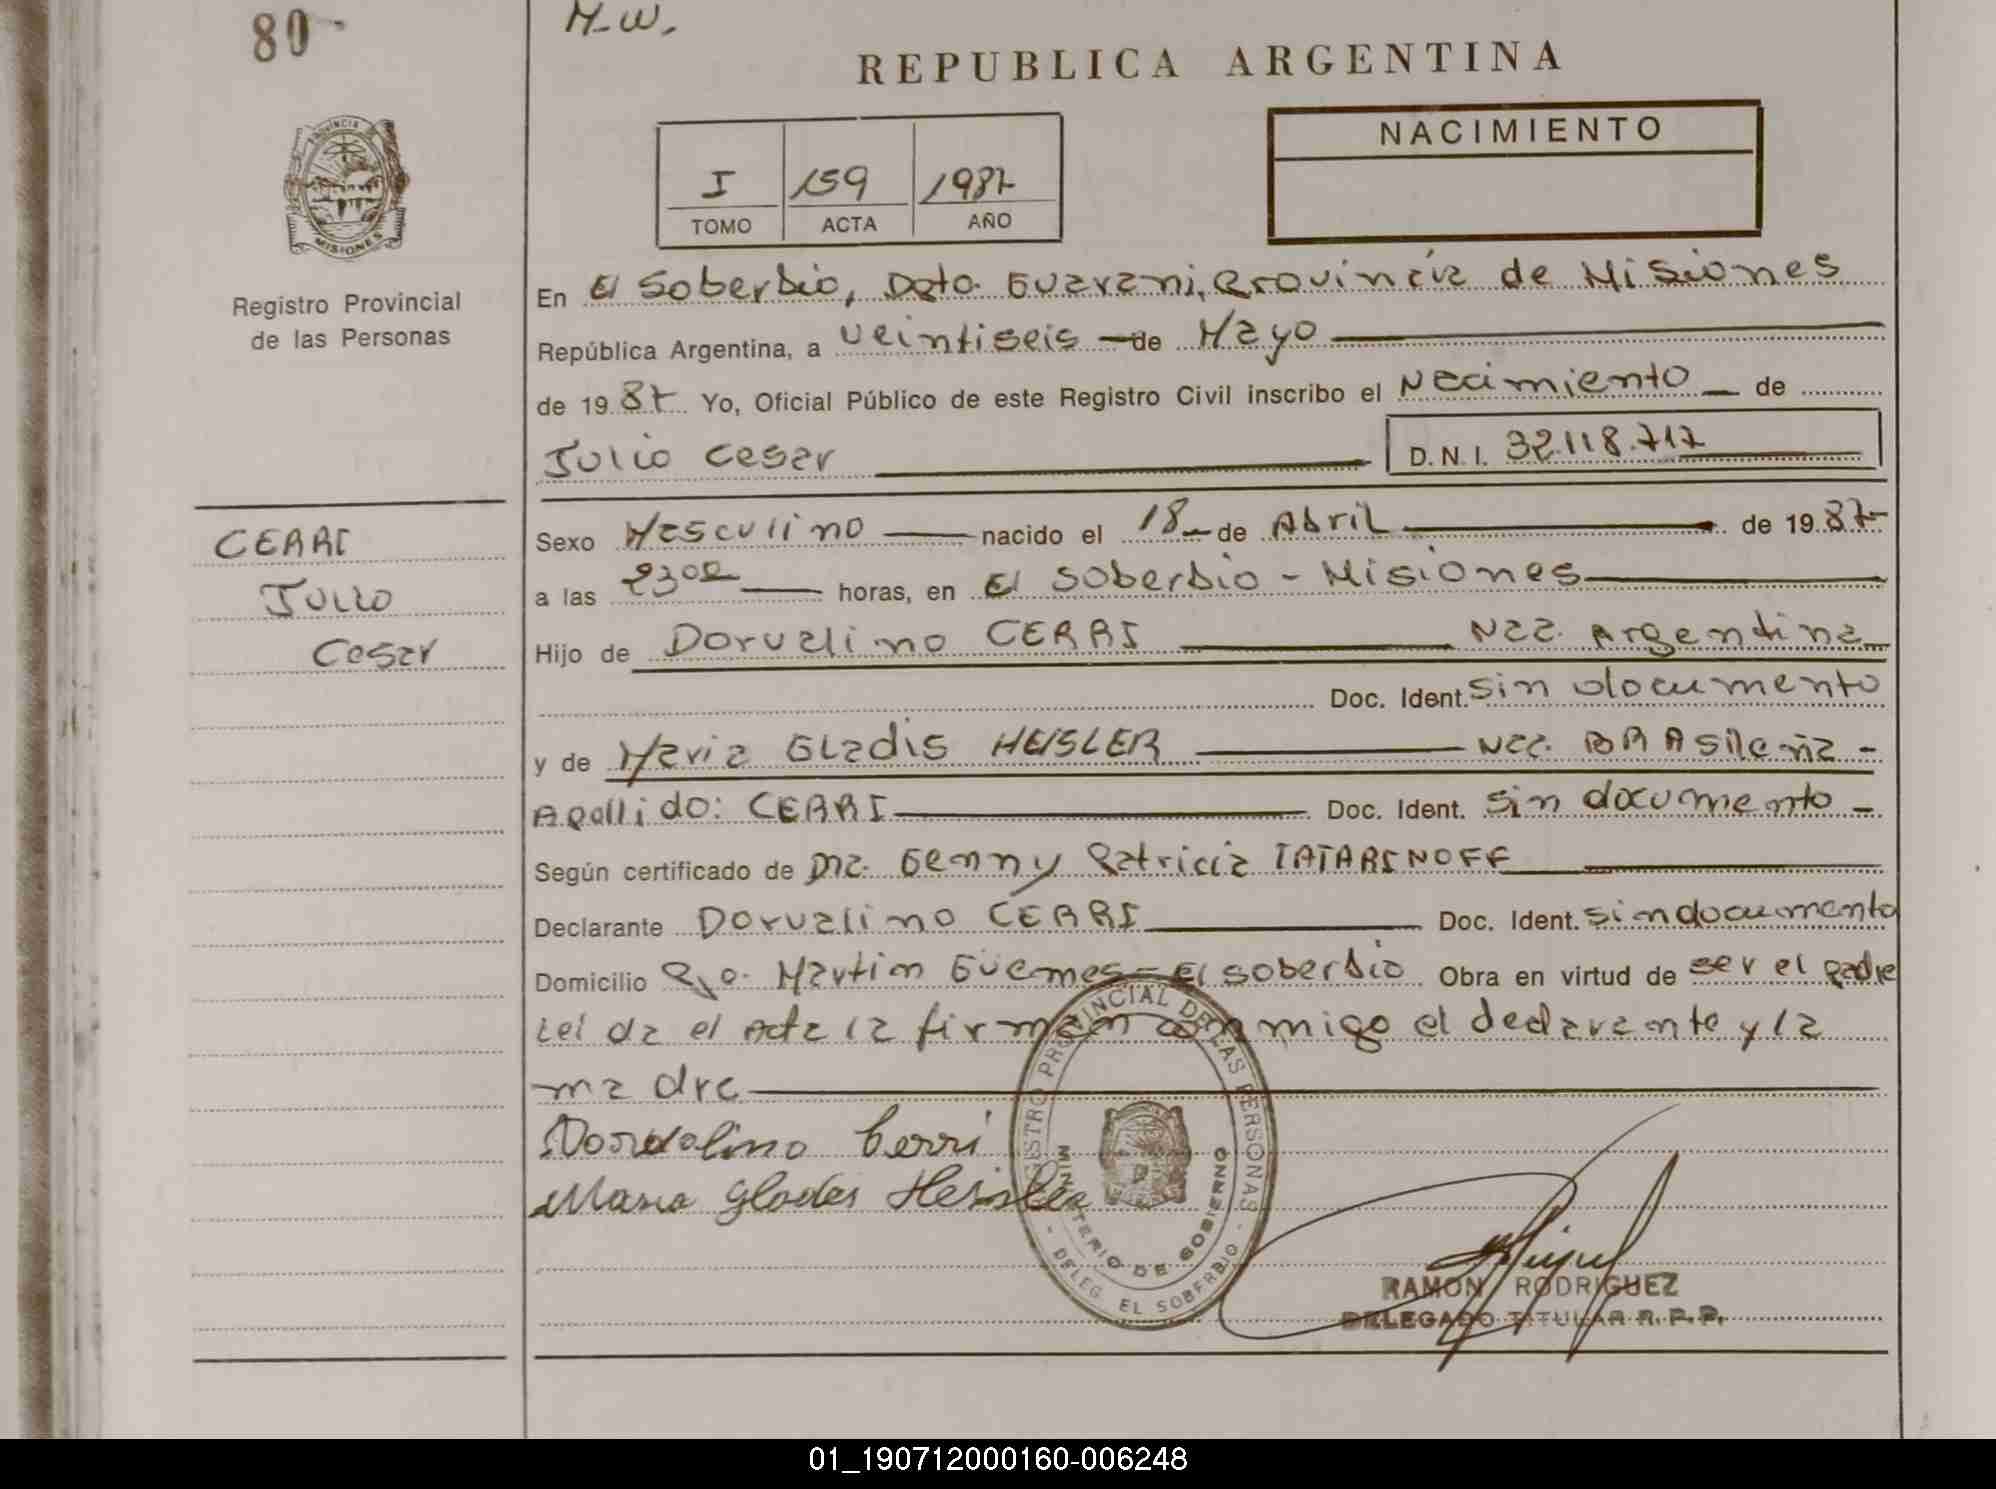 80
M-W.
REPUBLICA ARGENTINA
I 159 1987
TOMO ACTA AÑO
NACIMIENTO
PROVINCIA
MISIONES
Registro Provincial
de las Personas
En El Soberbio, Dpto. Guarani, Provincia de Misiones
República Argentina, a veintiseis de Mayo
de 19 87 Yo, Oficial Público de este Registro Civil inscribo el Nacimiento de
Julio Cesar D.N.I. 32.118.717
CERRI
Julio
Cesar
Sexo Masculino nacido el 18 de Abril de 19 87
a las 2302 horas, en El Soberbio - Misiones
Hijo de Dorvalino CERRI Nac. Argentina
Doc. Ident. sin documento
y de Maria Gladis HEISLER Nac. BRAsileña
Apellido: CERRI Doc. Ident. sin documento
Según certificado de Dra. Genny Patricia TATARINOFF
Declarante Dorvalino CERRI Doc. Ident. sin documento
Domicilio Pje. Martin Güemes - El Soberbio Obra en virtud de ser el padre
Lei da el Acta la firman conmigo el declarante y la
madre
Dorvalino Cerri
Maria Glades Heisler
REGISTRO PROVINCIAL DE LAS PERSONAS
MINISTERIO DE GOBIERNO
- DELEG. EL SOBERBIO -
RAMON RODRIGUEZ
DELEGADO TITULAR R.P.P.
01_190712000160-006248